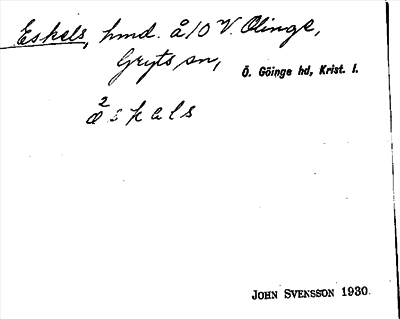 Eskels, hmd. å 10 V. Olinge,
Gryts sn, Ö. Göinge hd, Krist. l.
²æskals
JOHN SVENSSON 1930.